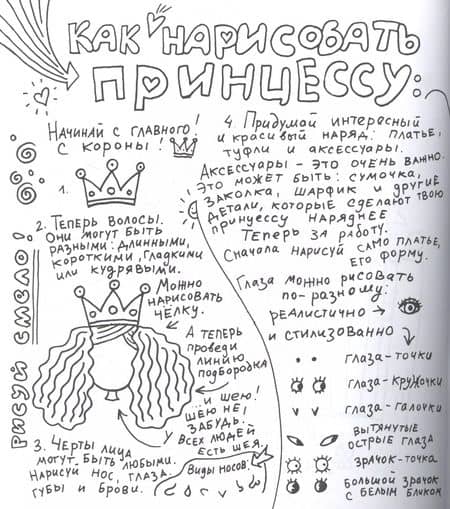 КАК НАРИСОВАТЬ
ПРИНЦЕССУ:
НАЧИНАЙ С ГЛАВНОГО!
С КОРОНЫ!
1.
2. ТЕПЕРЬ ВОЛОСЫ.
ОНИ МОГУТ БЫТЬ
РАЗНЫМИ: ДЛИННЫМИ,
КОРОТКИМИ, ГЛАДКИМИ
ИЛИ КУДРЯВЫМИ.
МОЖНО
НАРИСОВАТЬ
ЧЁЛКУ.
А ТЕПЕРЬ
ПРОВЕДИ
ЛИНИЮ
ПОДБОРОДКА
... И ШЕЮ!
ШЕЮ НЕ
ЗАБУДЬ...
У ВСЕХ ЛЮДЕЙ
ЕСТЬ ШЕЯ.
3. ЧЕРТЫ ЛИЦА
МОГУТ БЫТЬ ЛЮБЫМИ.
НАРИСУЙ НОС, ГЛАЗА,
ГУБЫ И БРОВИ.
ВИДЫ НОСОВ:
РИСУЙ СМЕЛО!
4. ПРИДУМАЙ ИНТЕРЕСНЫЙ
И КРАСИВЫЙ НАРЯД: ПЛАТЬЕ,
ТУФЛИ И АКСЕССУАРЫ.
АКСЕССУАРЫ – ЭТО ОЧЕНЬ ВАЖНО.
ЭТО МОЖЕТ БЫТЬ: СУМОЧКА,
ЗАКОЛКА, ШАРФИК И ДРУГИЕ
ДЕТАЛИ, КОТОРЫЕ СДЕЛАЮТ ТВОЮ
ПРИНЦЕССУ НАРЯДНЕЕ
ТЕПЕРЬ ЗА РАБОТУ.
СНАЧАЛА НАРИСУЙ САМО ПЛАТЬЕ,
ЕГО ФОРМУ.
ГЛАЗА МОЖНО РИСОВАТЬ
ПО-РАЗНОМУ:
РЕАЛИСТИЧНО
И СТИЛИЗОВАННО
ГЛАЗА-ТОЧКИ
ГЛАЗА-КРУЖОЧКИ
ГЛАЗА-ГАЛОЧКИ
ВЫТЯНУТЫЕ
ОСТРЫЕ ГЛАЗА
ЗРАЧОК-ТОЧКА
БОЛЬШОЙ ЗРАЧОК
С БЕЛЫМ БЛИКОМ